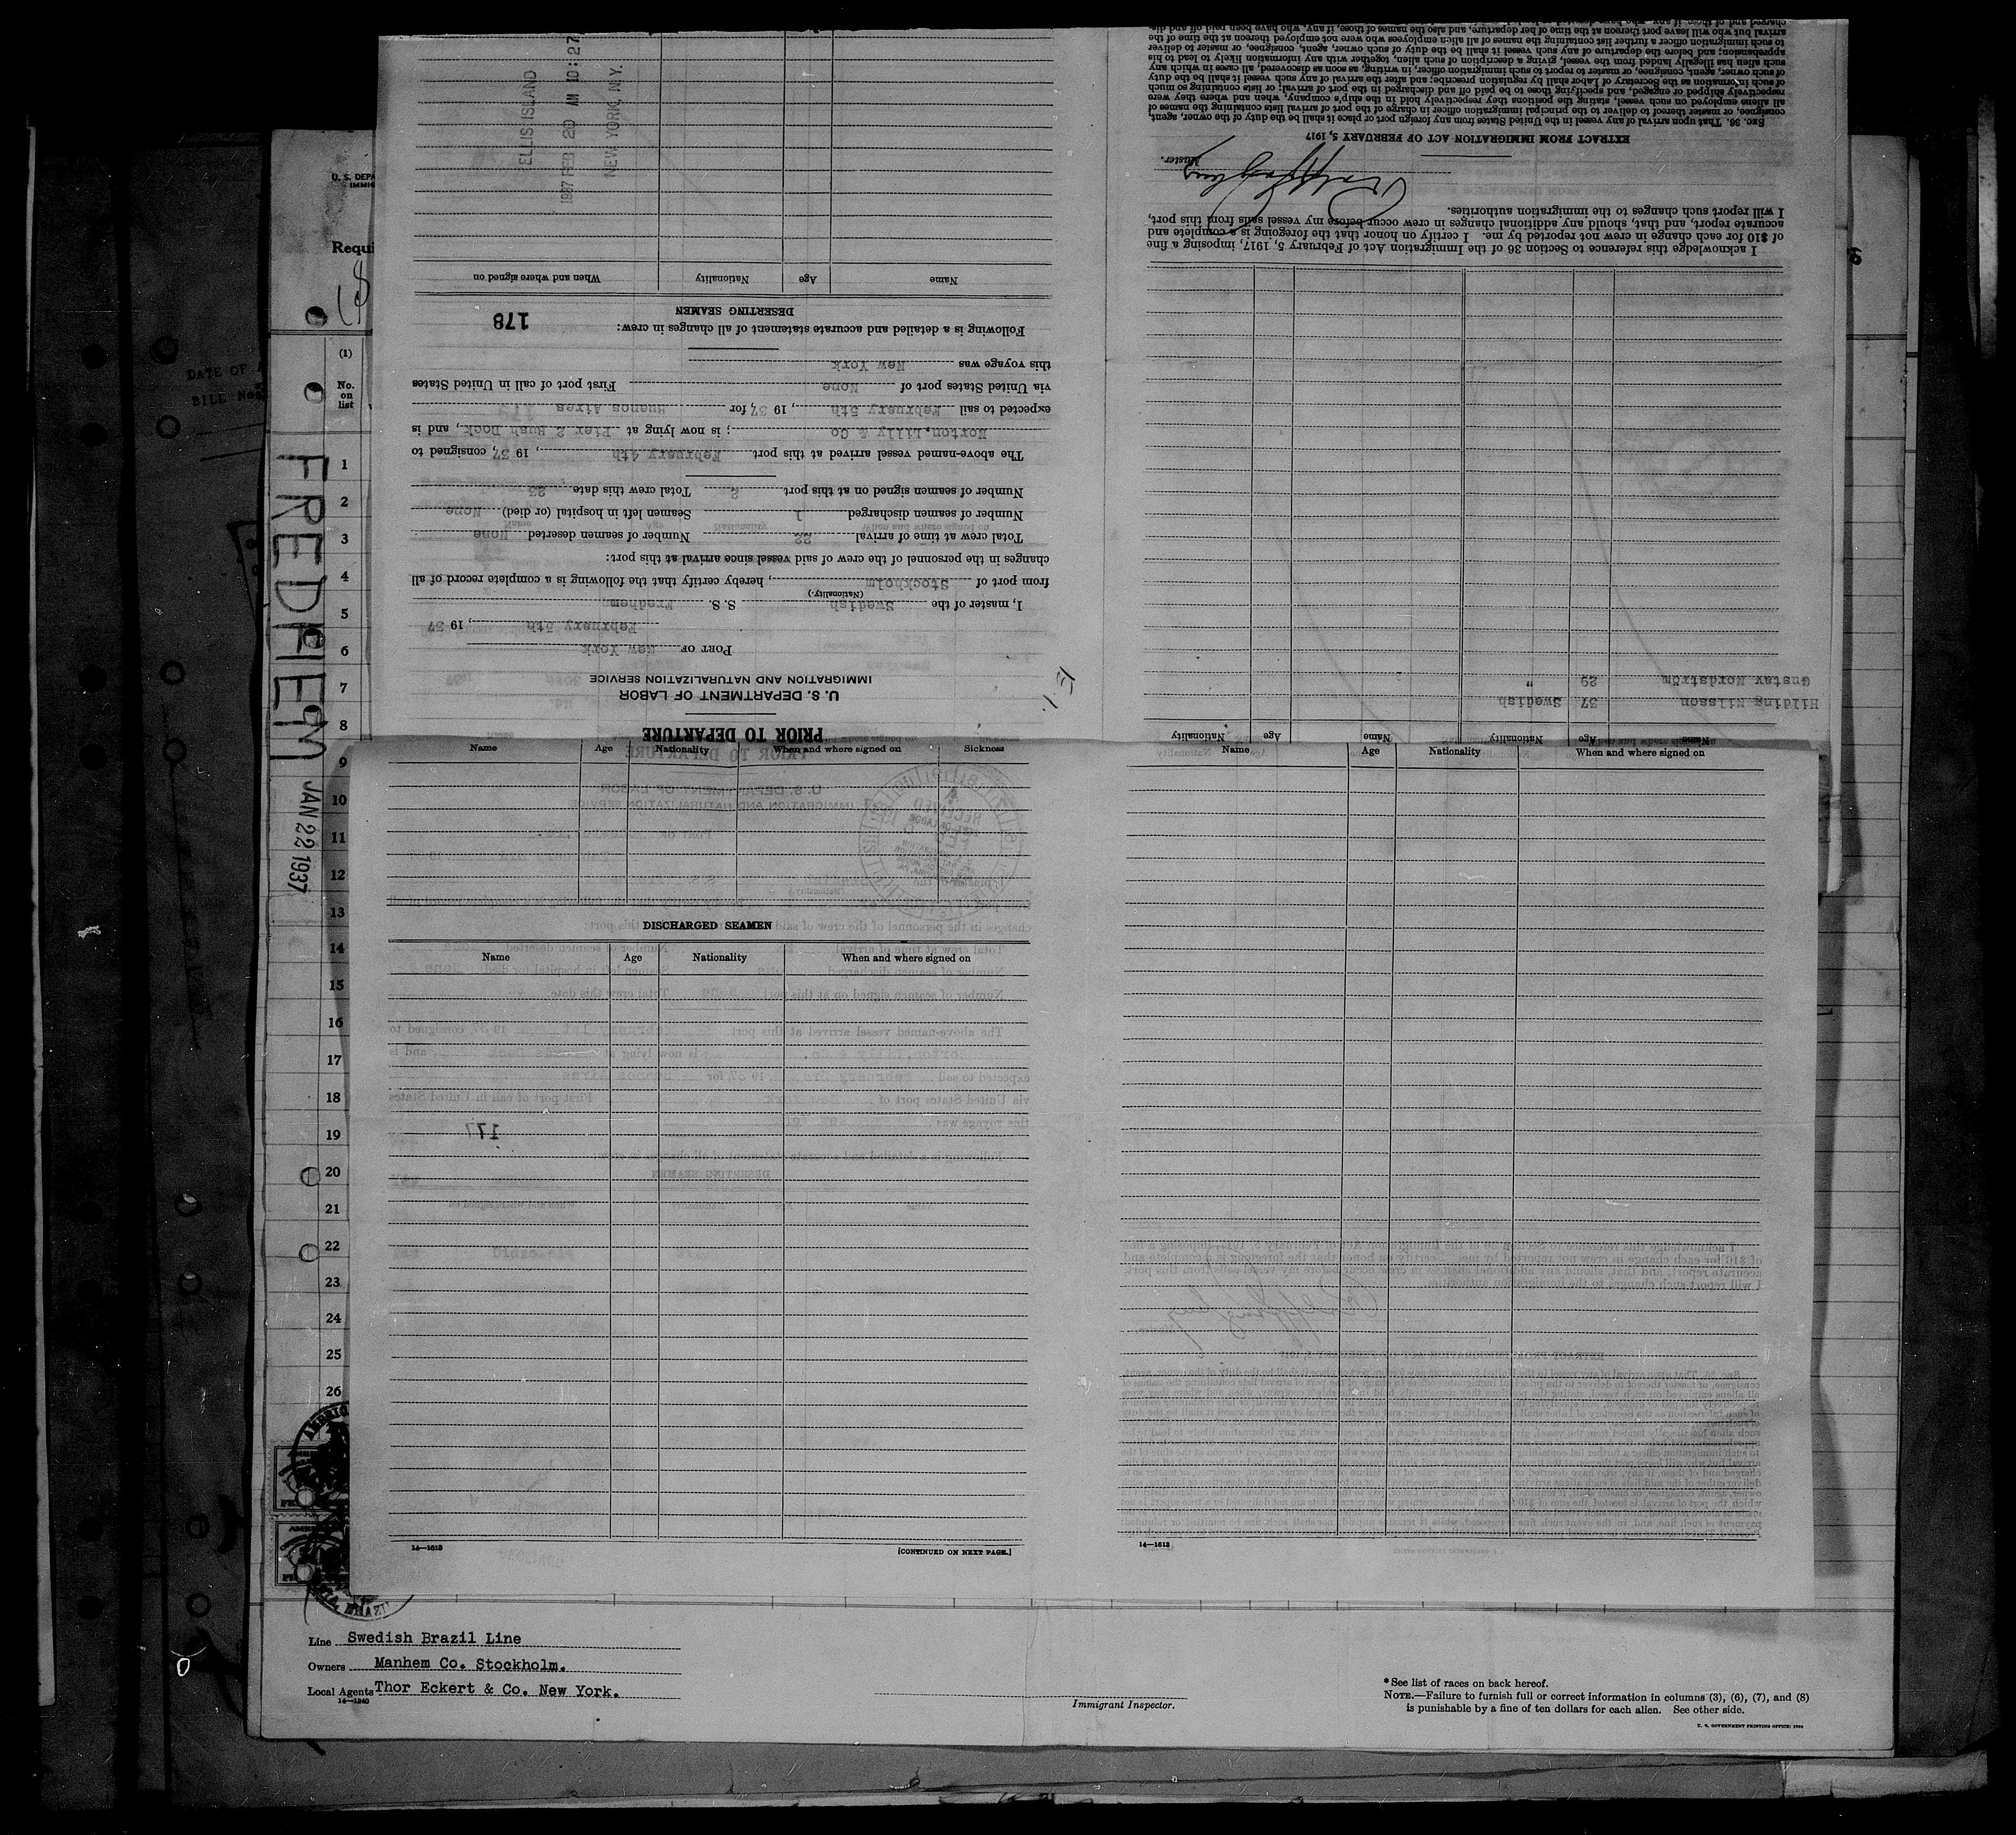 U. S. DEPA
IMMIG
Requi
(1)
No.
on
list
1
2
3
4
5
6
7
8
9
10
11
12
13
14
15
16
17
18
19
20
21
22
23
24
25
26
FREDHEM
JAN 22 1937
DATE OF A
BILL No.
PRIOR TO DEPARTURE
U. S. DEPARTMENT OF LABOR
IMMIGRATION AND NATURALIZATION SERVICE
PORT OF New York
February 5th, 19 37
I, master of the Swedish S. S. Fredhem
(Nationality.)
from port of Stockholm, hereby certify that the following is a complete record of all
changes in the personnel of the crew of said vessel since arrival at this port:
Total crew at time of arrival 22 Number of seamen deserted None
Number of seamen discharged 1 Seamen left in hospital (or died) None
Number of seamen signed on at this port 2 Total crew this date 23
The above-named vessel arrived at this port February 4th, 19 37, consigned to
Norton, Lilly & Co; is now lying at Pier 2 Bush Dock, and is
expected to sail February 5th, 19 37, for Buenos Aires
via United States port of None First port of call in United States
this voyage was New York
Following is a detailed and accurate statement of all changes in crew: 178
DESERTING SEAMEN
Name Age Nationality When and where signed on
ELLIS ISLAND
1937 FEB 20 AM 10:27
NEW YORK, N.Y.
Name Age Nationality Name Age Nationality
Hilding Nilsson 37 Swedish
Gustav Nordström 29 "
I acknowledge this reference to Section 36 of the Immigration Act of February 5, 1917, imposing a fine
of $10 for each change in crew not reported by me. I certify on honor that the foregoing is a complete and
accurate report, and that, should any additional changes in crew occur before my vessel sails from this port,
I will report such changes to the immigration authorities.
Master.
EXTRACT FROM IMMIGRATION ACT OF FEBRUARY 5, 1917
SEC. 36. That upon arrival of any vessel in the United States from any foreign port or place it shall be the duty of the owner, agent,
consignee, or master thereof to deliver to the principal immigration officer in charge of the port of arrival lists containing the names of
all aliens employed on such vessel, stating the positions they respectively hold in the ship's company, when and where they were
respectively shipped or engaged, and specifying those to be paid off and discharged in the port of arrival; or lists containing so much
of such information as the Secretary of Labor shall by regulation prescribe; and after the arrival of any such vessel it shall be the duty
of such owner, agent, consignee, or master to report to such immigration officer, in writing, as soon as discovered, all cases in which any
such alien has illegally landed from the vessel, giving a description of such alien, together with any information likely to lead to his
apprehension; and before the departure of any such vessel it shall be the duty of such owner, agent, consignee, or master to deliver
to such immigration officer a further list containing the names of all alien employees who were not employed thereon at the time of the
arrival but who will leave port thereon at the time of her departure, and also the names of those, if any, who have been paid off and dis-
Name Age Nationality When and where signed on Sickness
DISCHARGED SEAMEN
Name Age Nationality When and where signed on
177
14—1613
[CONTINUED ON NEXT PAGE.]
Name Age Nationality When and where signed on
14—1613
Line Swedish Brazil Line
Owners Manhem Co. Stockholm.
Local Agents Thor Eckert & Co. New York.
14—1240
Immigrant Inspector.
* See list of races on back hereof.
NOTE.—Failure to furnish full or correct information in columns (3), (6), (7), and (8)
is punishable by a fine of ten dollars for each alien. See other side.
U. S. GOVERNMENT PRINTING OFFICE